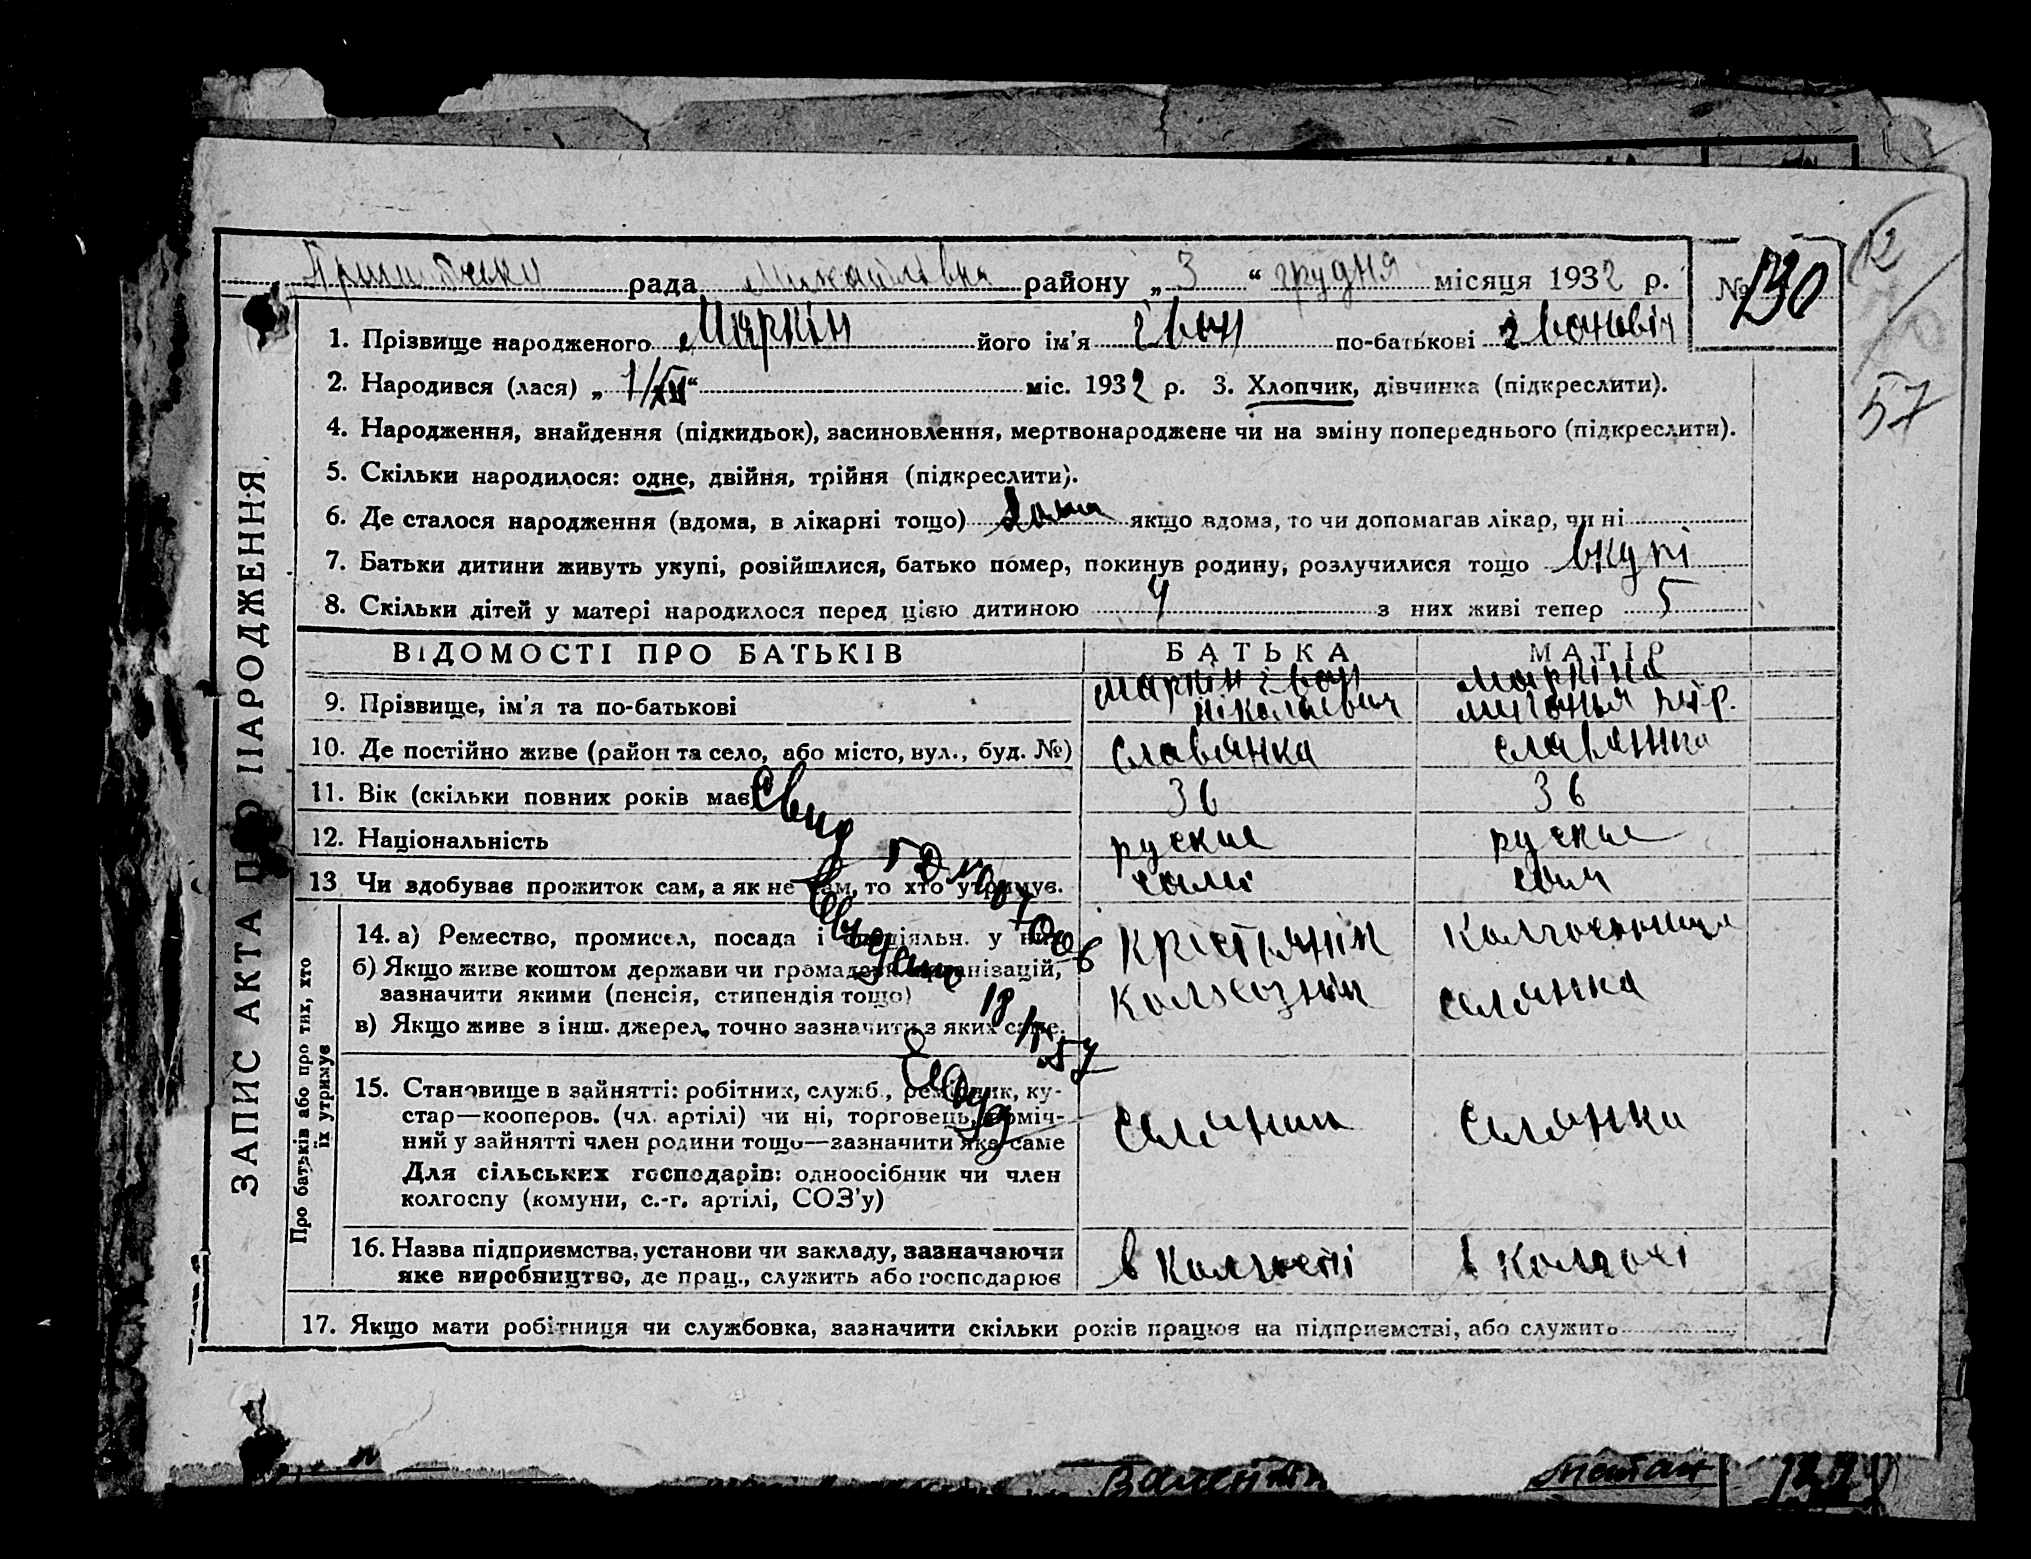 рада Михайловка району „3“ грудня місяця 1932 р. № 130
1. Прізвище народженого Маркін його ім'я іван по-батькові івановіч
2. Народився (лася) „1/XII“ міс. 1932 р. 3. Хлопчик, дівчинка (підкреслити).
4. Народження, знайдення (підкидьок), засиновлення, мертвонароджене чи на зміну попереднього (підкреслити).
5. Скільки народилося: одне, двійня, трійня (підкреслити).
6. Де сталося народження (вдома, в лікарні тощо) дома якщо вдома, то чи допомагав лікар, чи ні
7. Батьки дитини живуть укупі, розійшлися, батько помер, покинув родину, розлучилися тощо вкупі
8. Скільки дітей у матері народилося перед цією дитиною 4 з них живі тепер 5
ВІДОМОСТІ ПРО БАТЬКІВ БАТЬКА МАТІР
9. Прізвище, ім'я та по-батькові маркін іван ніколаевич маркіна
10. Де постійно живе (район та село, або місто, вул., буд. №) Славянка славянка
11. Вік (скільки повних років має 36 36
12. Національність руские руские
13 Чи здобуває прожиток сам, а як не сам, то хто утримує. самі сам
14. а) Ремество, промисел, посада і спеціяльн. у ній Крістьянін Колгоспниця
б) Якщо живе коштом держави чи громадськ. організацій,
зазначити якими (пенсія, стипендія тощо) колхознік селянка
в) Якщо живе з інш. джерел, точно зазначити з яких саме.
15. Становище в зайнятті: робітник, служб., ремісник, ку-
стар—кооперов. (чл. артілі) чи ні, торговець, поміч-
ний у зайнятті член родини тощо—зазначити яке саме селянин селянка
Для сільських господарів: одноосібник чи член
колгоспу (комуни, с.-г. артілі, СОЗ'у)
16. Назва підприємства, установи чи закладу, зазначаючи
яке виробництво, де прац., служить або господарює в колгоспі в колгосі
17. Якщо мати робітниця чи службовка, зазначити скільки років працює на підприємстві, або служить
ЗАПИС АКТА ПРО НАРОДЖЕННЯ
Про батьків або про тих, хто
їх утримує
12
57